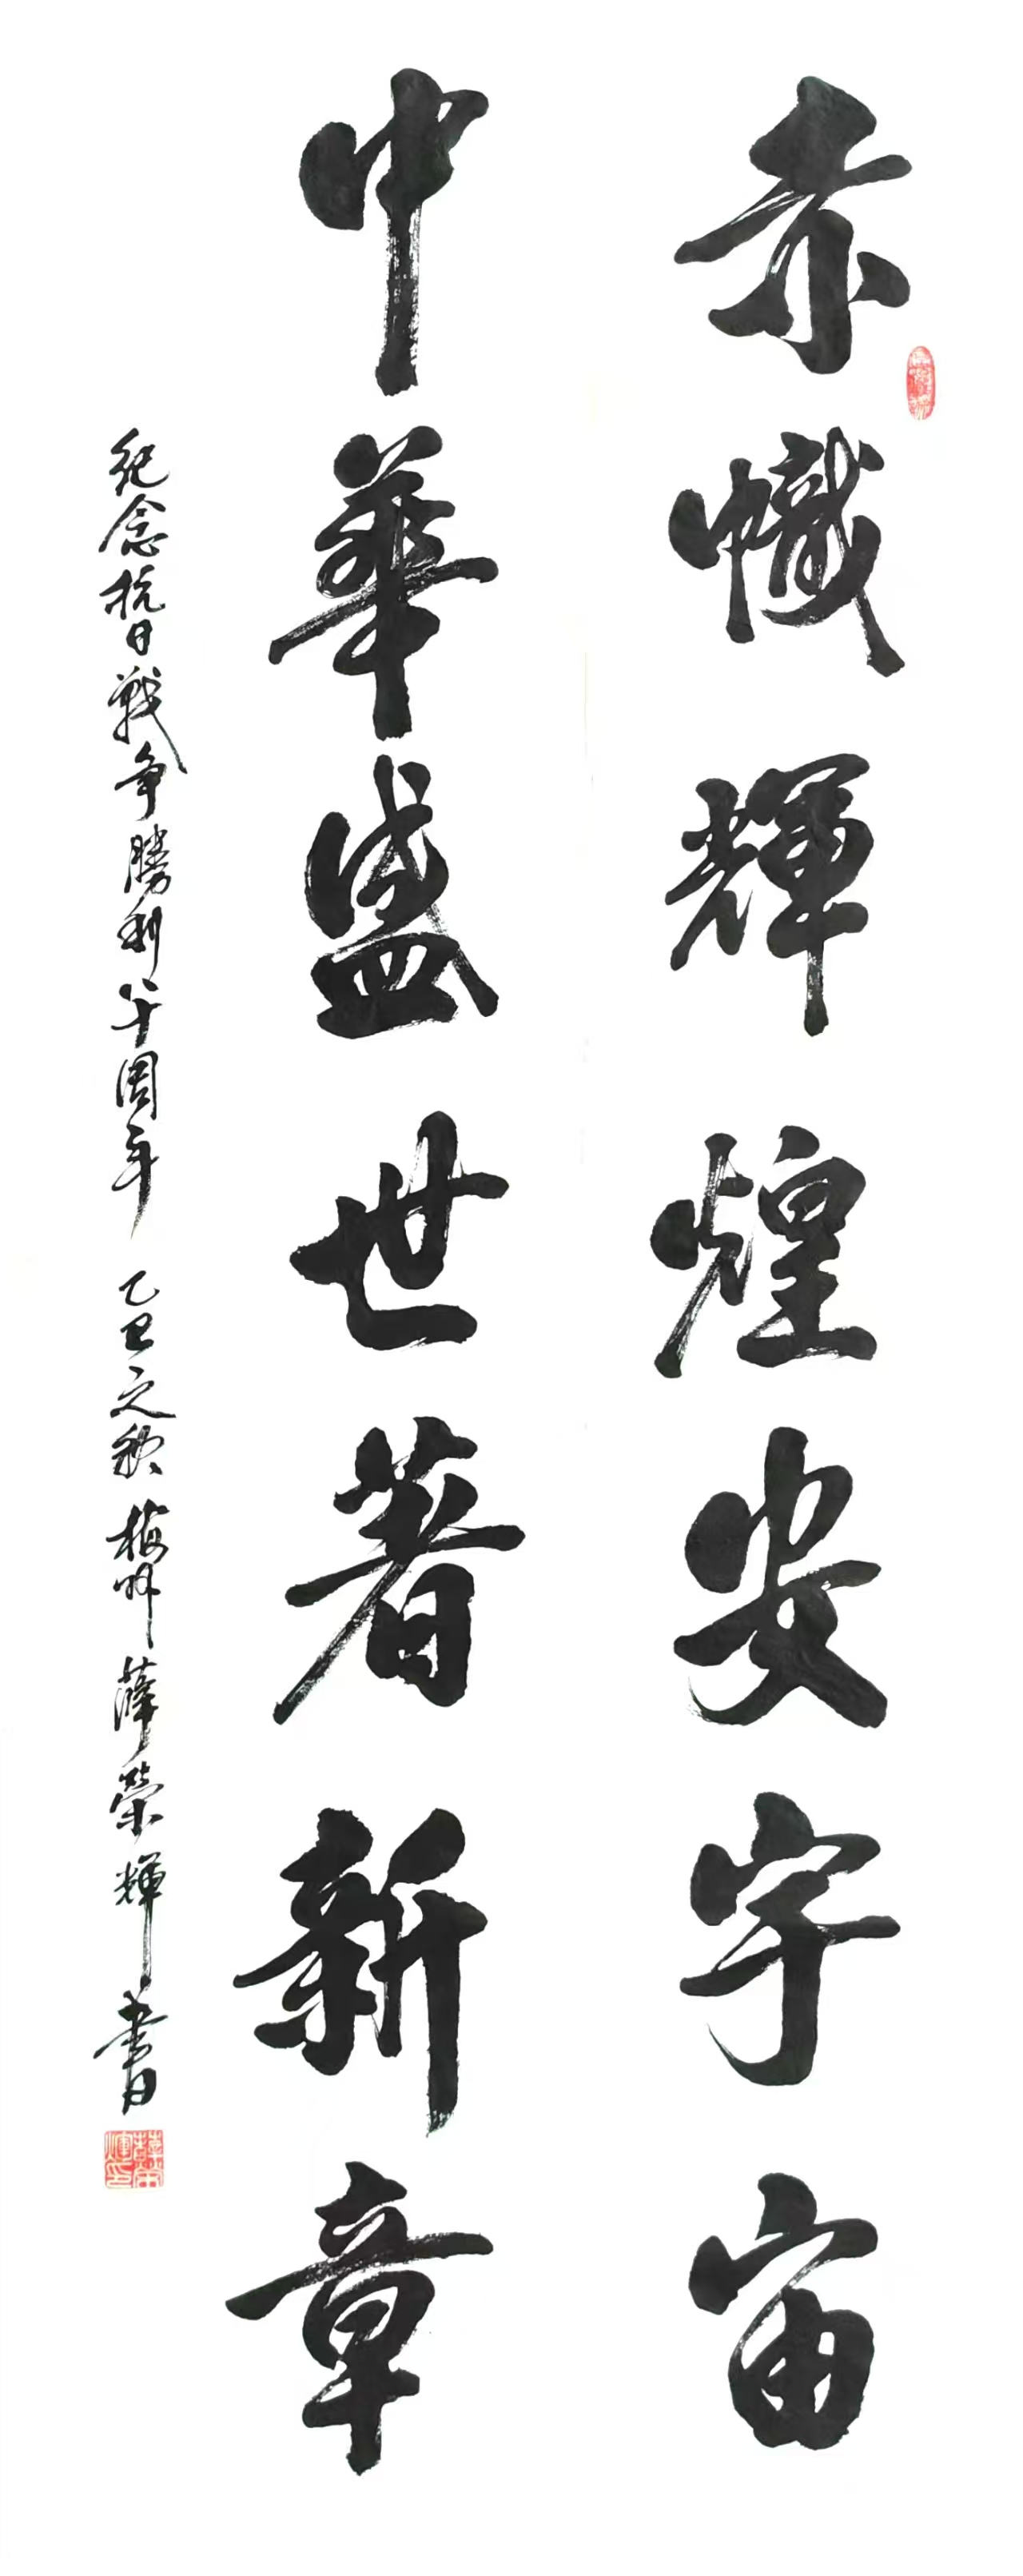 赤幟輝煌安宇宙
中華盛世著新章
紀念抗日戰争勝利八十周年 乙巳之秋 梅州 薛榮輝書